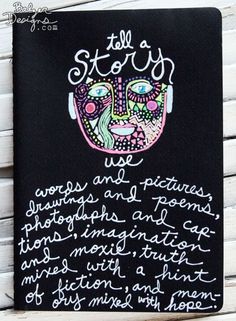 Balzer
Designs
.com
tell a
Story
use
words and pictures,
drawings and poems,
photographs and cap-
tions, imagination
and moxie, truth
mixed with a hint
of fiction, and mem-
ory mixed with hope.